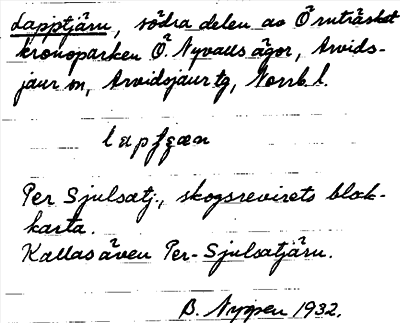 Lapptjärn, södra delen av Örnträsket
kronoparken Ö. Nyvalls ägor, Arvids-
jaur sn, Arvidsjaur tg, Norrb. l.
Per Sjulsatj., skogsrevirets blok-
karta.
Kallas även Per-Sjulsatjärn.
B. Nygren 1932.